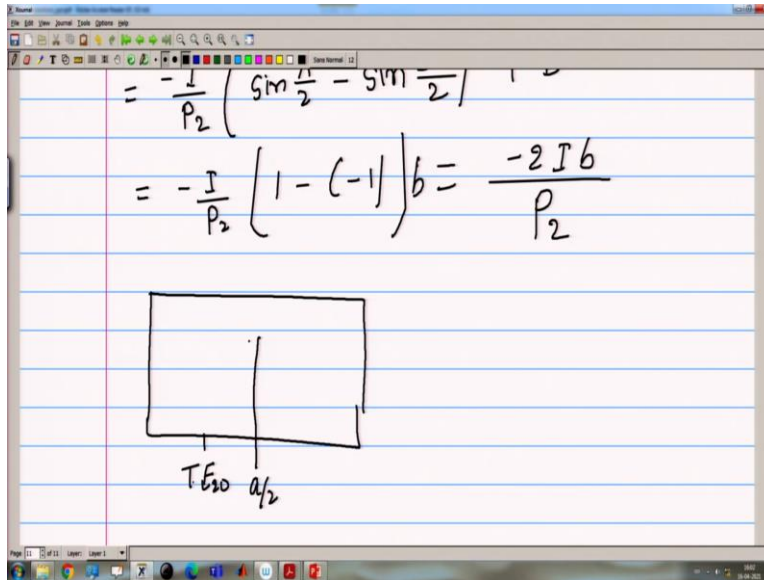 File Edit View Journal Tools Options Help
Sans Normal 12
= -I/P₂ ( sin π/2 - sin
= -I/P₂ ( 1 - (-1) ) b = -2Ib/P₂
TE₂₀ a/2
Page 11 of 11 Layer: Layer 1